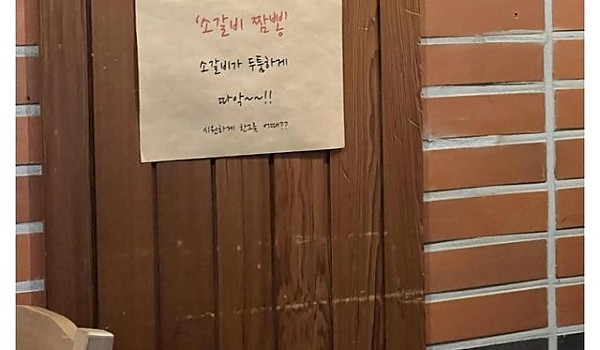 '소갈비 짬뽕'
소갈비가 두툼하게
따악~~!!
시원하게 한그릇 어때??